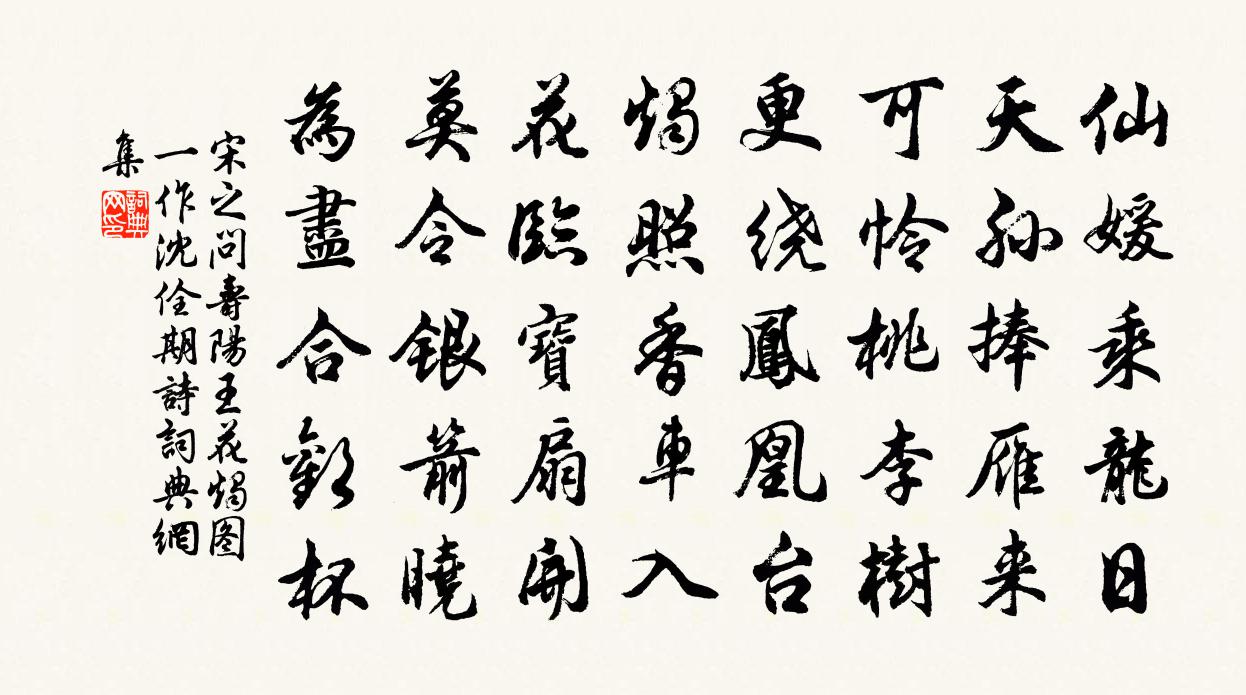 仙媛乘龍日
天孫捧雁来
可怜桃李樹
更绕鳳凰台
燭照香車入
花臨寶扇開
莫令銀箭曉
為盡合歡杯
宋之问壽陽王花燭图
一作沈佺期詩詞典網
集
詞典网印